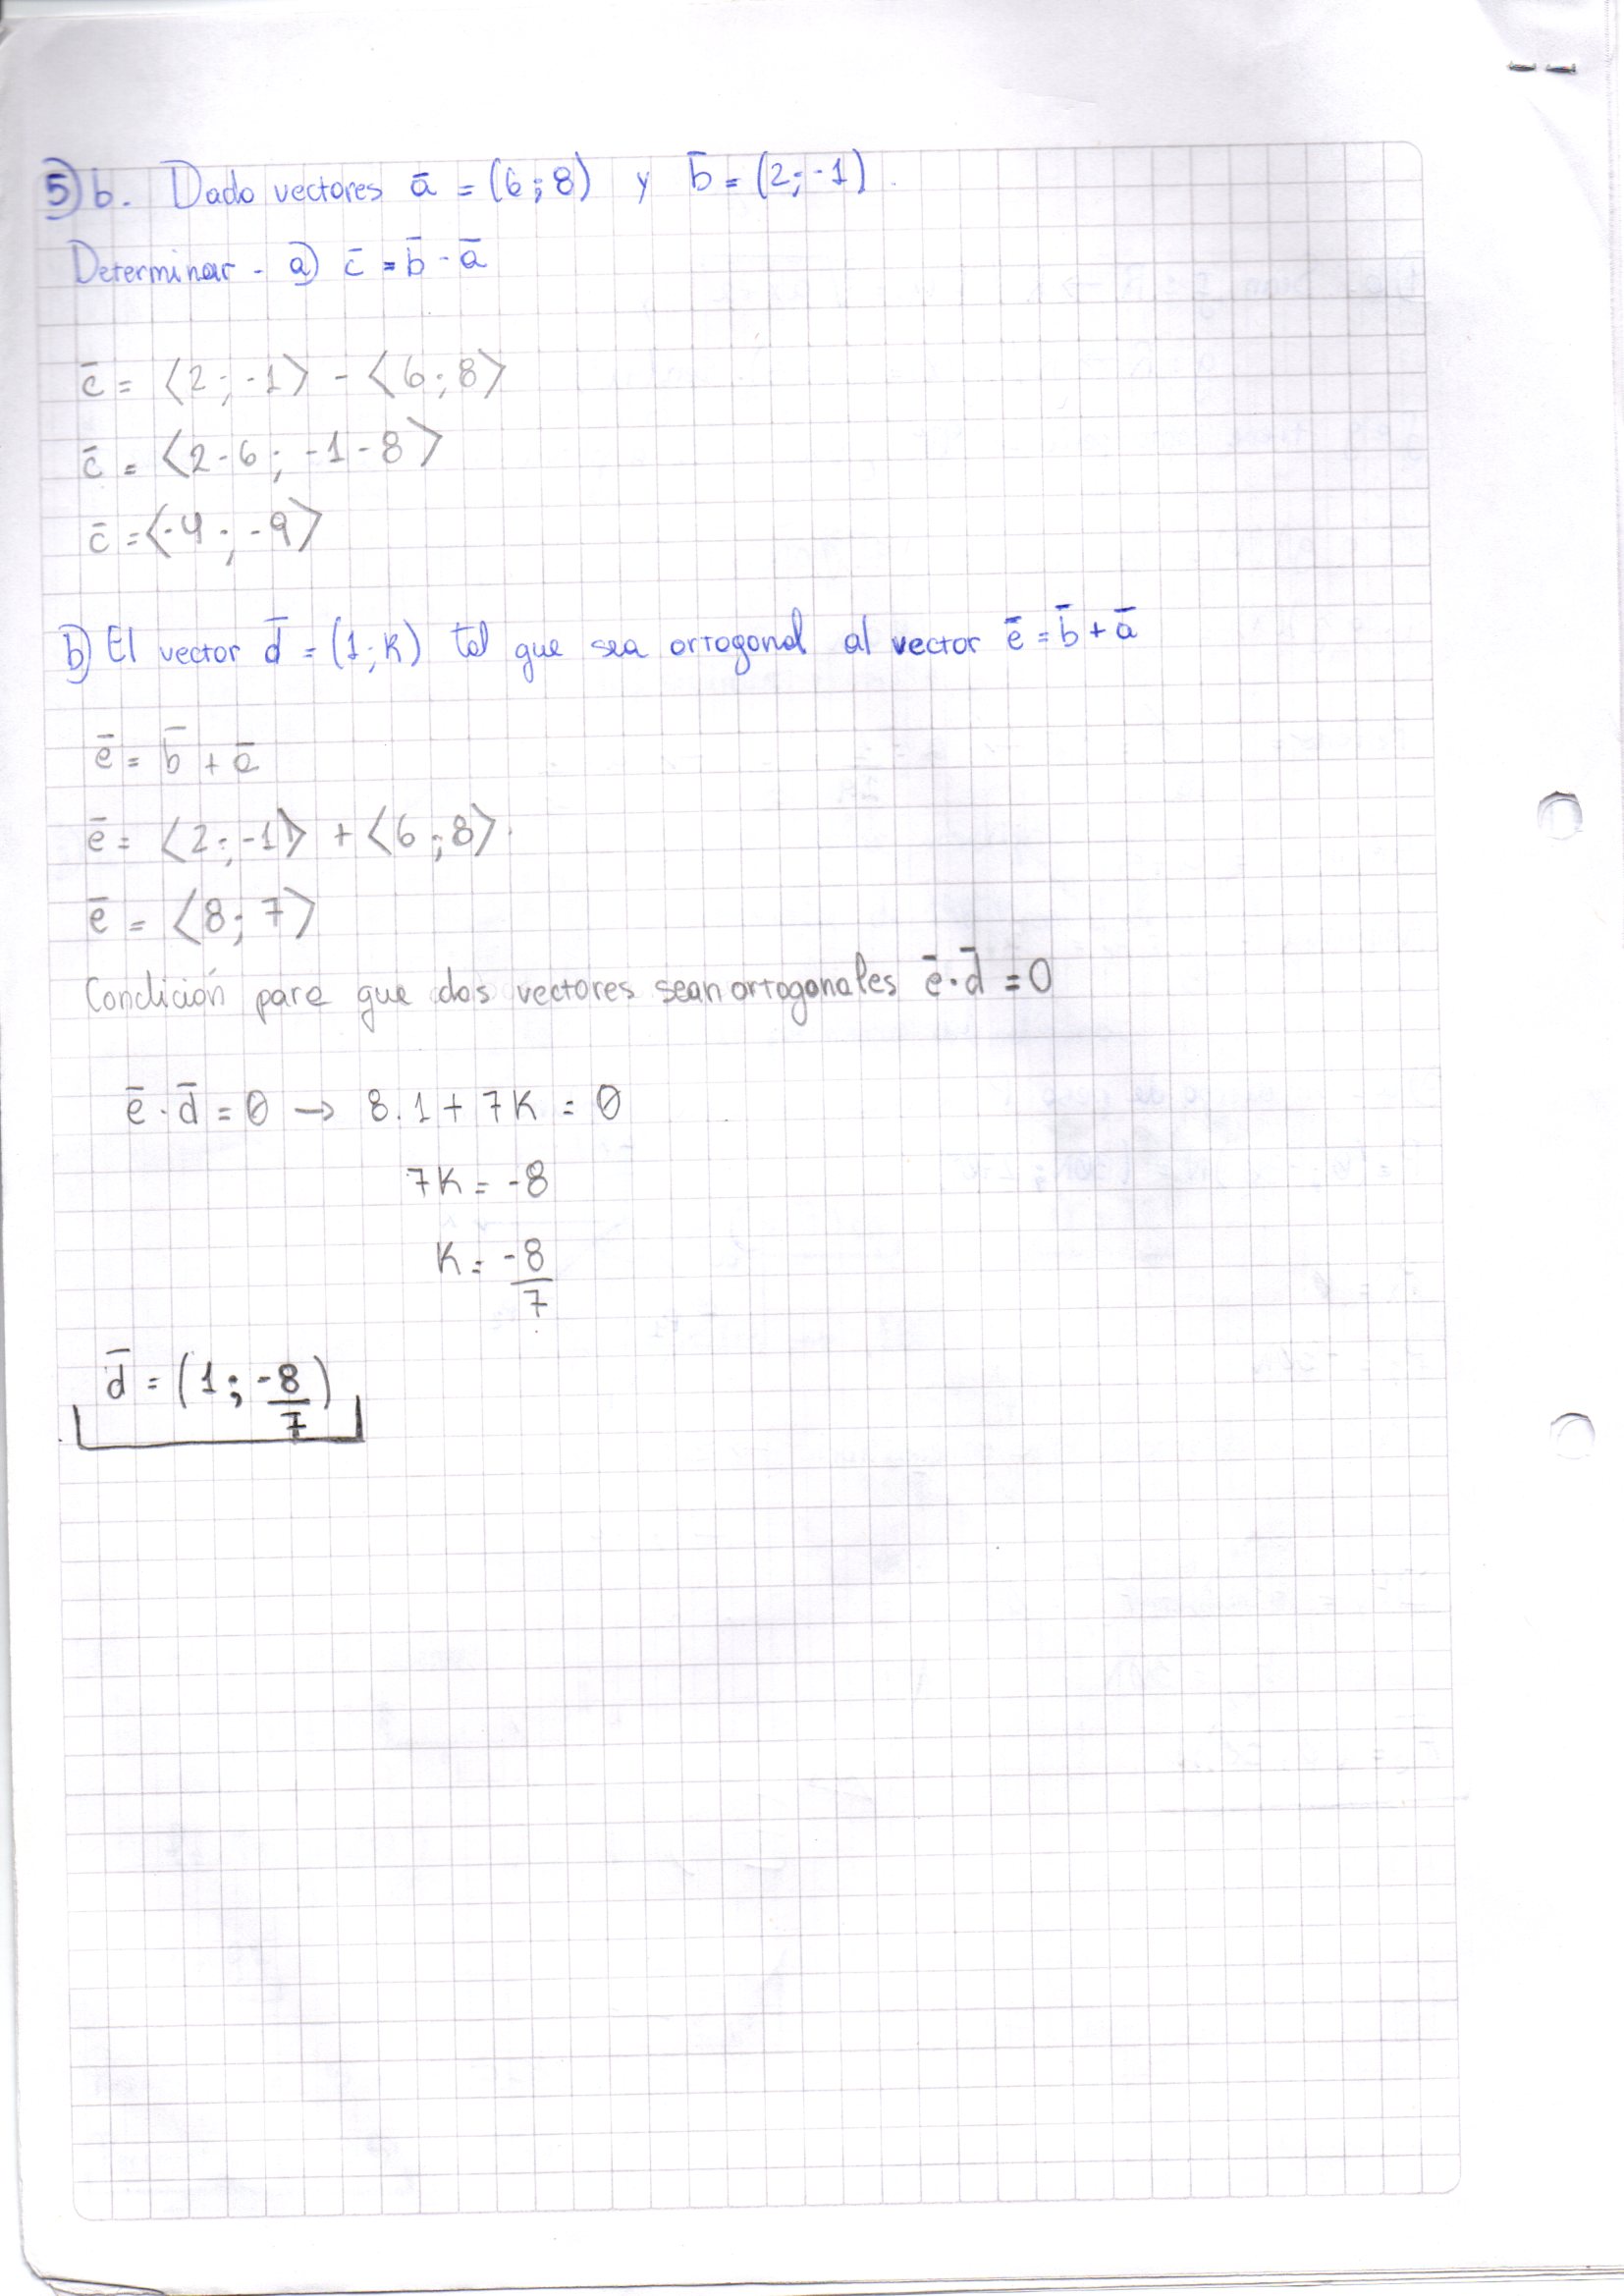 5) b. Dado vectores a̅ = (6;8) y b̅ = (2;-1).
Determinar - a) c̅ = b̅ - a̅
c̅ = ⟨2;-1⟩ - ⟨6;8⟩
c̅ = ⟨2-6; -1-8⟩
c̅ = ⟨-4; -9⟩
b) El vector d̅ = (1;K) tal que sea ortogonal al vector e̅ = b̅ + a̅
e̅ = b̅ + a̅
e̅ = ⟨2;-1⟩ + ⟨6;8⟩.
e̅ = ⟨8;7⟩
Condición para que dos vectores sean ortogonales e̅·d̅ = 0
e̅·d̅ = 0 → 8.1 + 7K = 0
7K = -8
K = -8/7
d̅ = (1; -8/7)